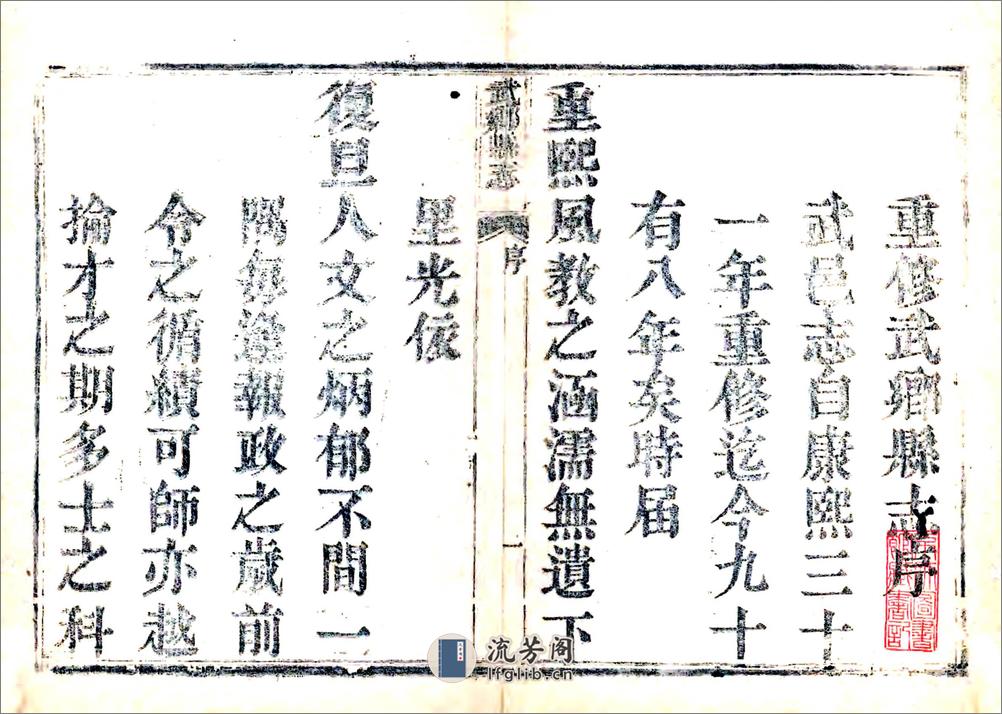 重修武鄉縣志序
武邑志自康熙三十
一年重修迄今九十
有八年矣時届
重熙風教之涵濡無遺下
武鄉縣志 序 一
里光依
復旦人文之炳郁不間一
隅每逢報政之歲前
令之循績可師亦越
掄才之期多士之科
流芳阁
lfglib.cn